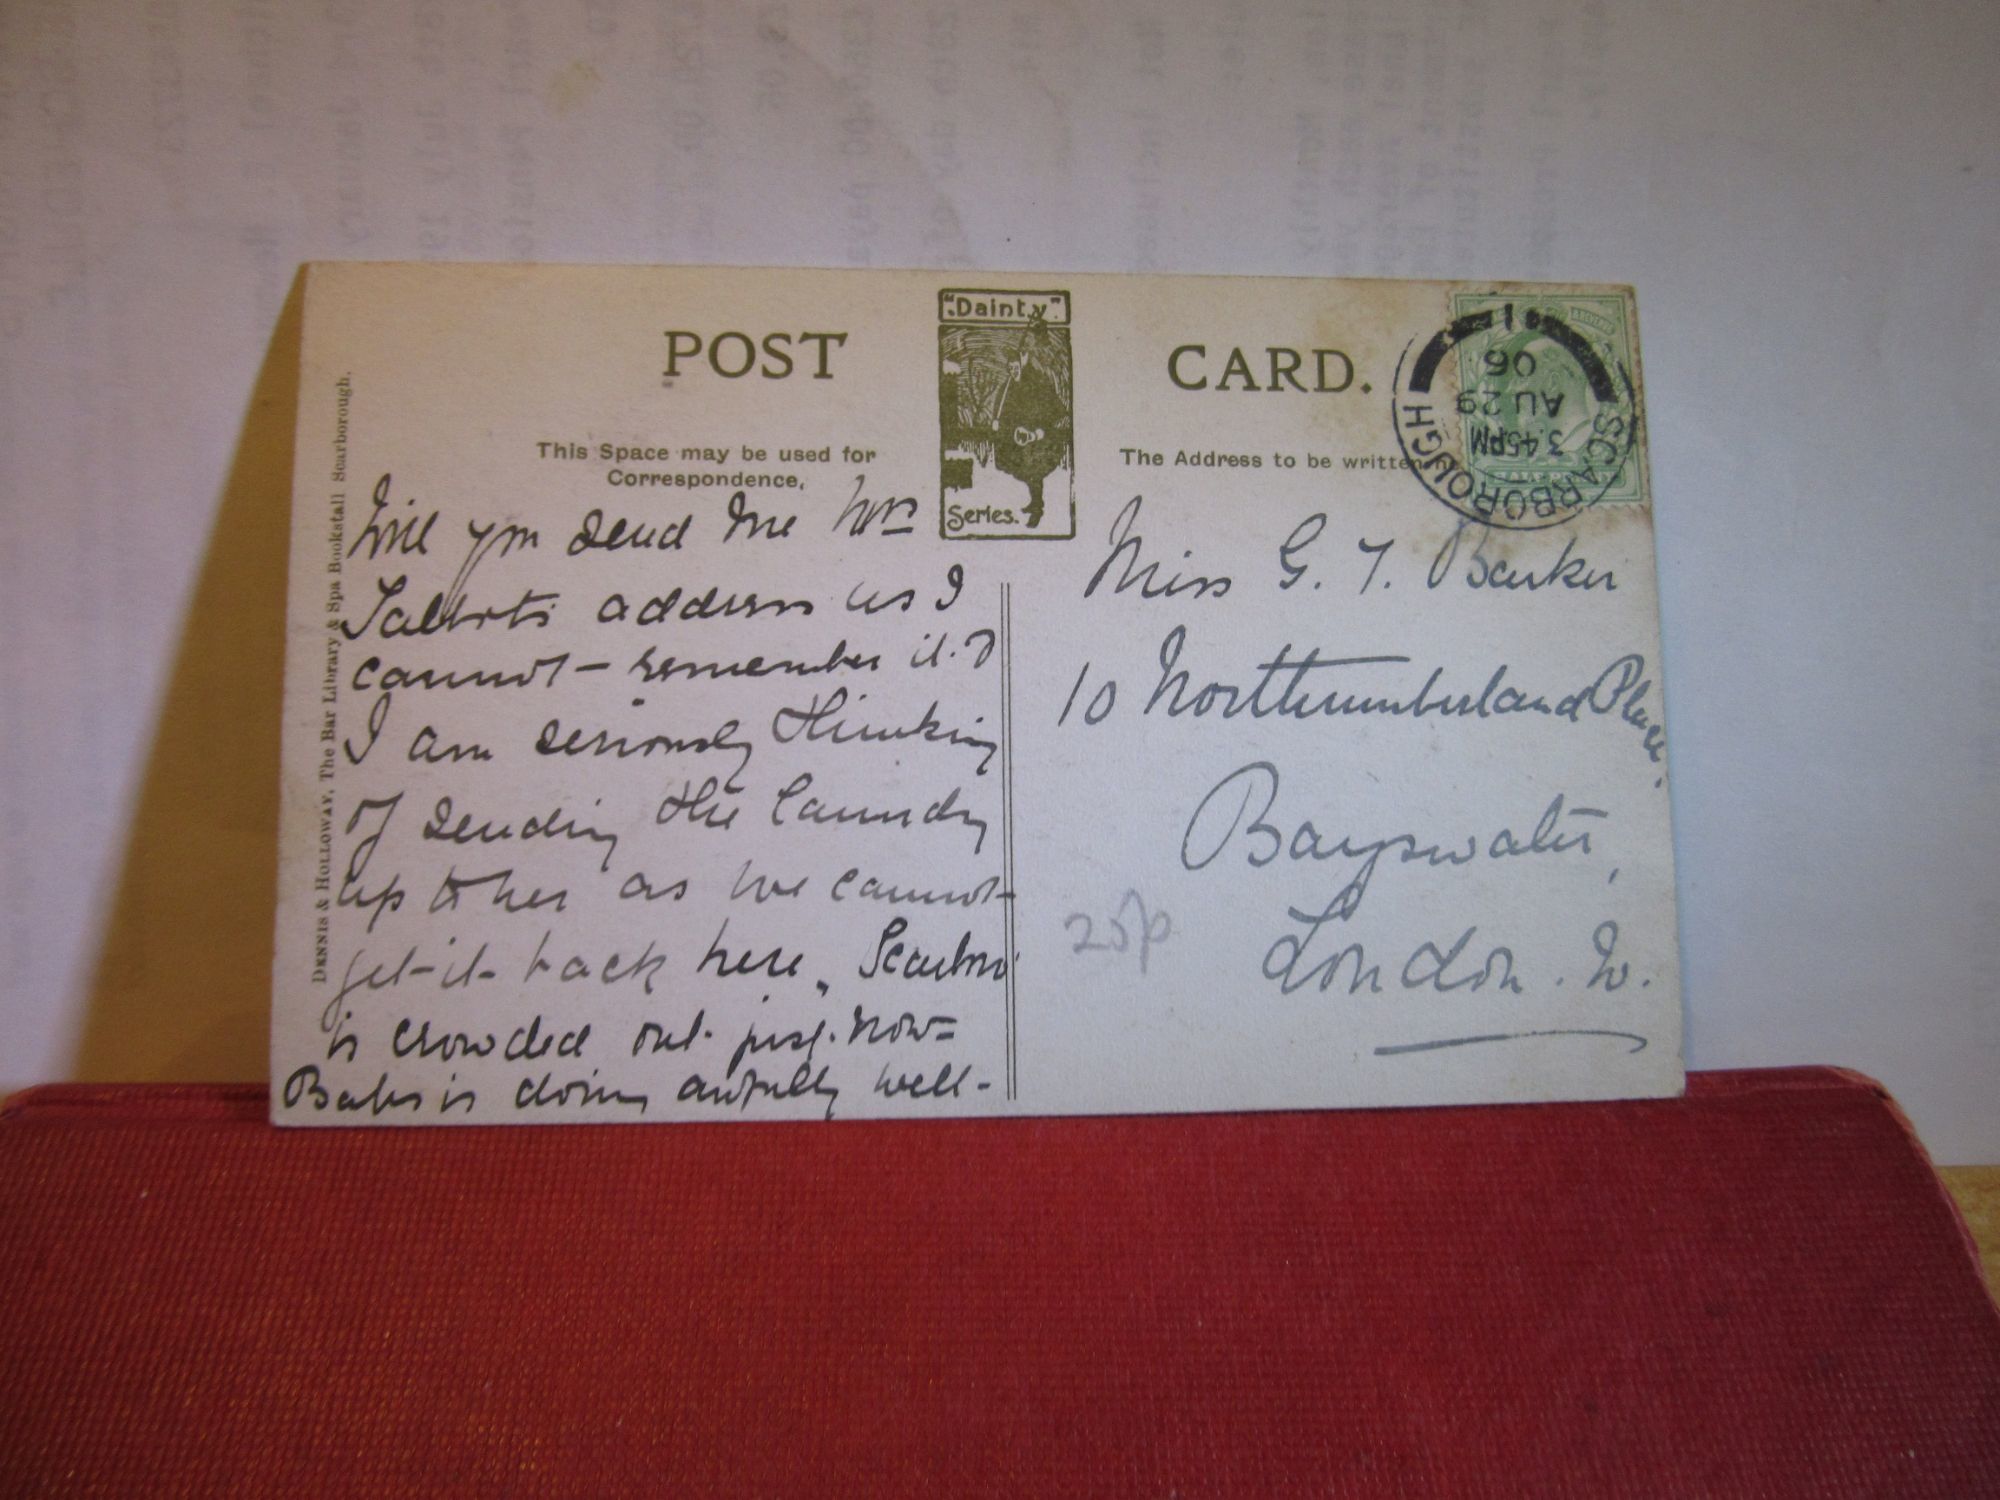 POST CARD.
"Dainty"
Series.
This Space may be used for
Correspondence.
The Address to be written
DENNIS & HOLLOWAY, The Bar Library & Spa Bookstall Scarborough.
SCARBOROUGH
3.45PM
AU 29
06
1
Will you send me Mrs
Talbots address as I
cannot - remember it. &
I am seriously thinking
of sending the laundry
up to her as we cannot -
get - it - back here. Scarbro'
is crowded out just now -
Babs is doing awfully well -
Miss G. T. Barker
10 Northumberland Place.
Bayswater,
London. W.
25p